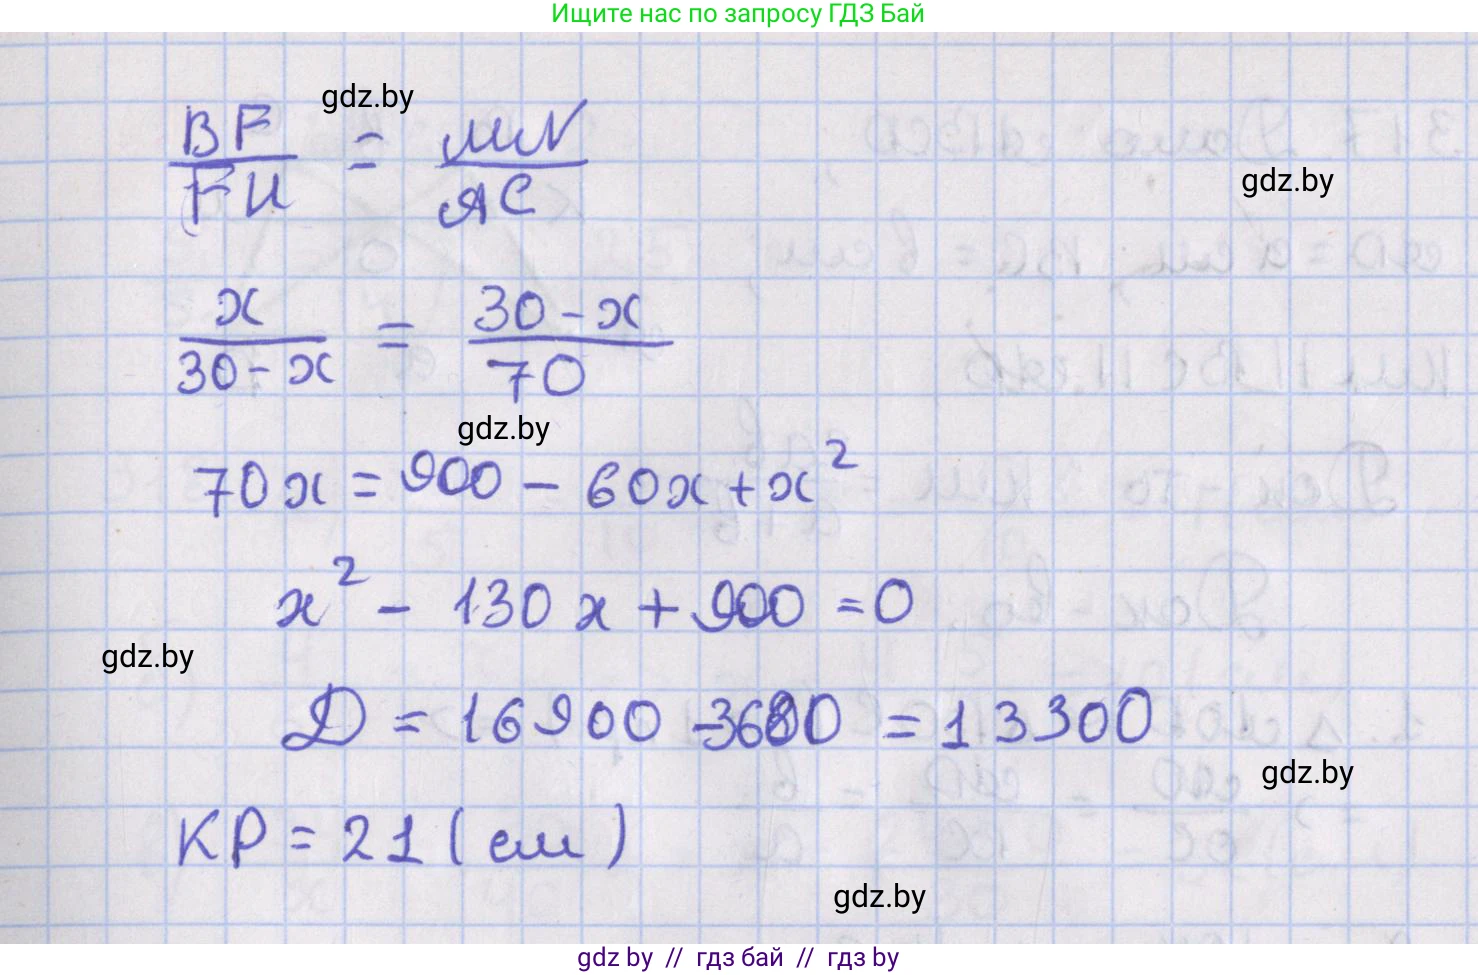 Ищите нас по запросу ГДЗ Бай
gdz.by
BF/FH = MN/AC
gdz.by
x/30-x = 30-x/70
gdz.by
70x = 900 - 60x + x²
x² - 130x + 900 = 0
gdz.by
Д = 16900 - 3600 = 13300
gdz.by
KP = 21 (см)
gdz.by
gdz by // гдз бай // гдз by